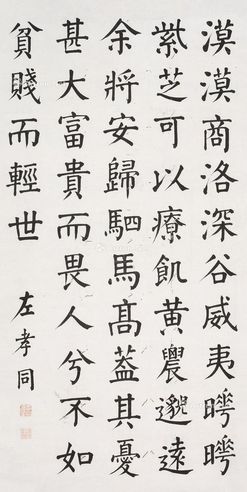 漠漠商洛深谷威夷曄曄
紫芝可以療飢黃農邈遠
余將安歸駟馬高蓋其憂
甚大富貴而畏人兮不如
貧賤而輕世
左孝同